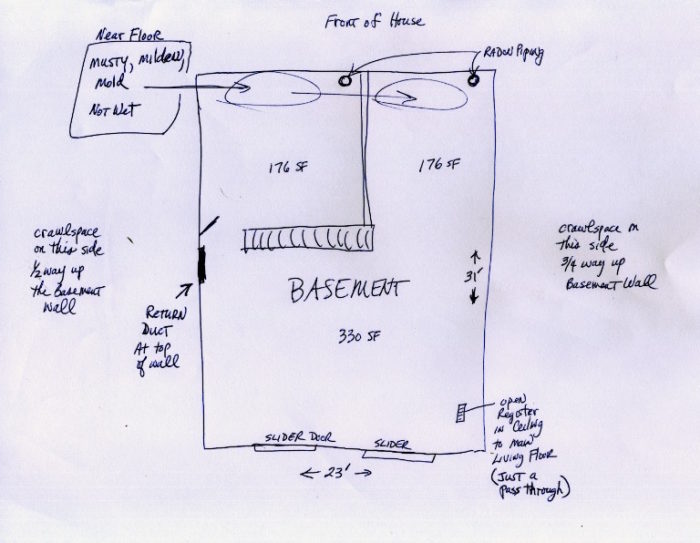 Front of House
Near Floor
musty, mildew,
mold
Not Wet
RADON Piping
176 SF
176 SF
crawlspace
on this side
1/2 way up
the Basement
Wall
crawlspace on
this side
3/4 way up
Basement Wall
31'
BASEMENT
330 SF
RETURN
Duct
At top
of wall
open
Register
in Ceiling
to main
Living Floor
(Just a
Pass through)
SLIDER DOOR
SLIDER
← 23' →